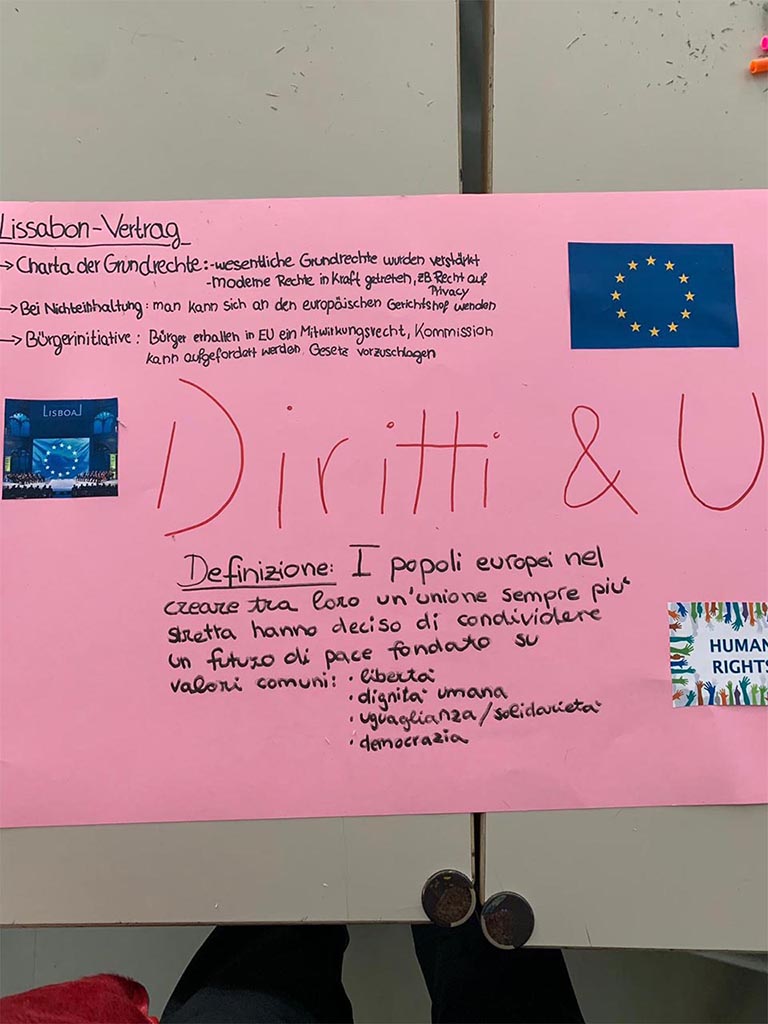 Lissabon-Vertrag
→ Charta der Grundrechte: -wesentliche Grundrechte wurden verstärkt
-moderne Rechte in Kraft getreten, zB Recht auf
Privacy
→ Bei Nichteinhaltung: man kann sich an den europäischen Gerichtshof wenden
→ Bürgerinitiative: Bürger erhalten in EU ein Mitwirkungsrecht, Kommission
kann aufgefordert werden, Gesetz vorzuschlagen
LISBOA
Diritti & U
Definizione: I popoli europei nel
creare tra loro un'unione sempre piu'
stretta hanno deciso di condividere
un futuro di pace fondato su
valori comuni: • liberta'
• dignita' umana
• uguaglianza/solidarieta'
• democrazia
HUMAN
RIGHTS